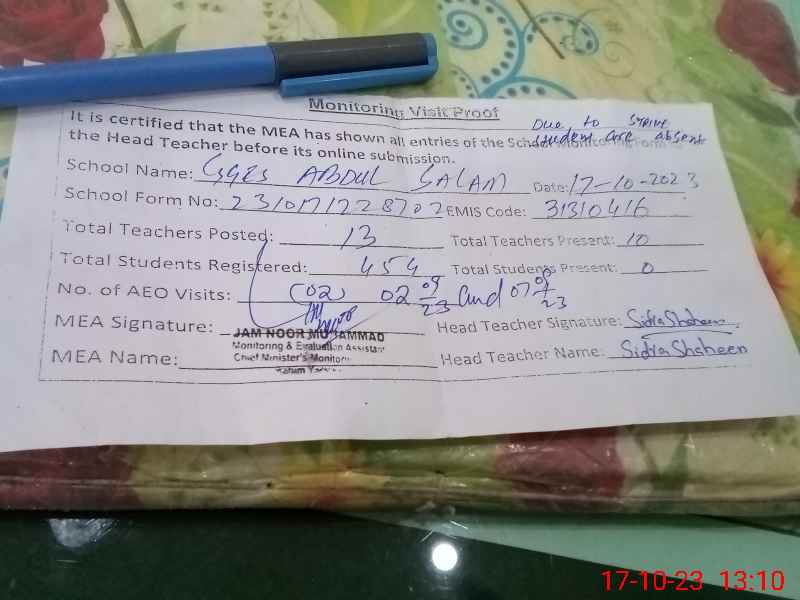 Monitoring Visit Proof
Due to strike
student are absent
It is certified that the MEA has shown all entries of the School Monitoring Form to
the Head Teacher before its online submission.
School Name: GGES ABDUL SALAM Date: 17-10-2023
School Form No: 2310171228702 EMIS Code: 31310416
Total Teachers Posted: 13 Total Teachers Present: 10
Total Students Registered: 454 Total Students Present: 0
No. of AEO Visits: (02) 02 09/23 and 07 09/23
MEA Signature: Head Teacher Signature: Sidra Shaheen
JAM NOOR MUHAMMAD
Monitoring & Evaluation Assistant
MEA Name: Head Teacher Name: Sidra Shaheen
Chief Minister's Monitoring
17-10-23 13:10